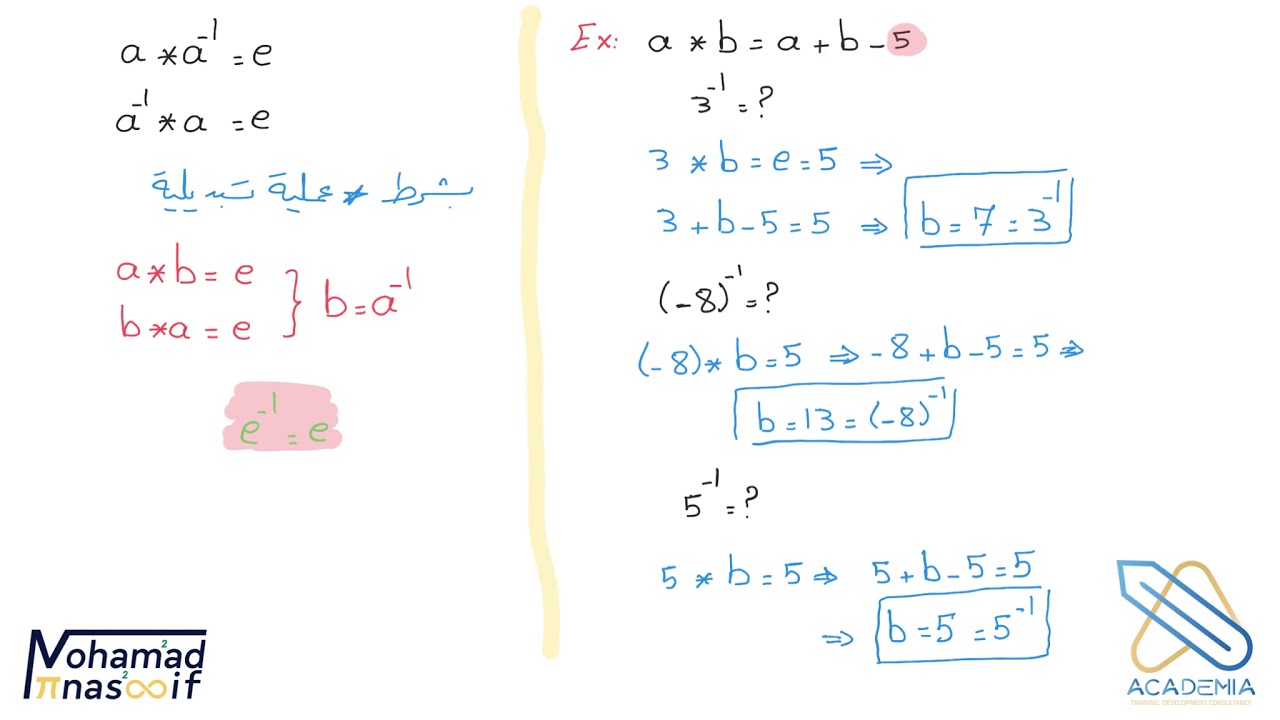 a * a⁻¹ = e
a⁻¹ * a = e
بشرط * عملية تبديلية
a * b = e
b * a = e
} b = a⁻¹
e⁻¹ = e
Ex: a * b = a + b - 5
3⁻¹ = ?
3 * b = e = 5 ⇒
3 + b - 5 = 5 ⇒ b = 7 = 3⁻¹
(-8)⁻¹ = ?
(-8) * b = 5 ⇒ -8 + b - 5 = 5 ⇒
b = 13 = (-8)⁻¹
5⁻¹ = ?
5 * b = 5 ⇒ 5 + b - 5 = 5
⇒ b = 5 = 5⁻¹
Mohamad
πnas∞if
2
2
ACADEMIA
TRAINING DEVELOPMENT CONSULTANCY